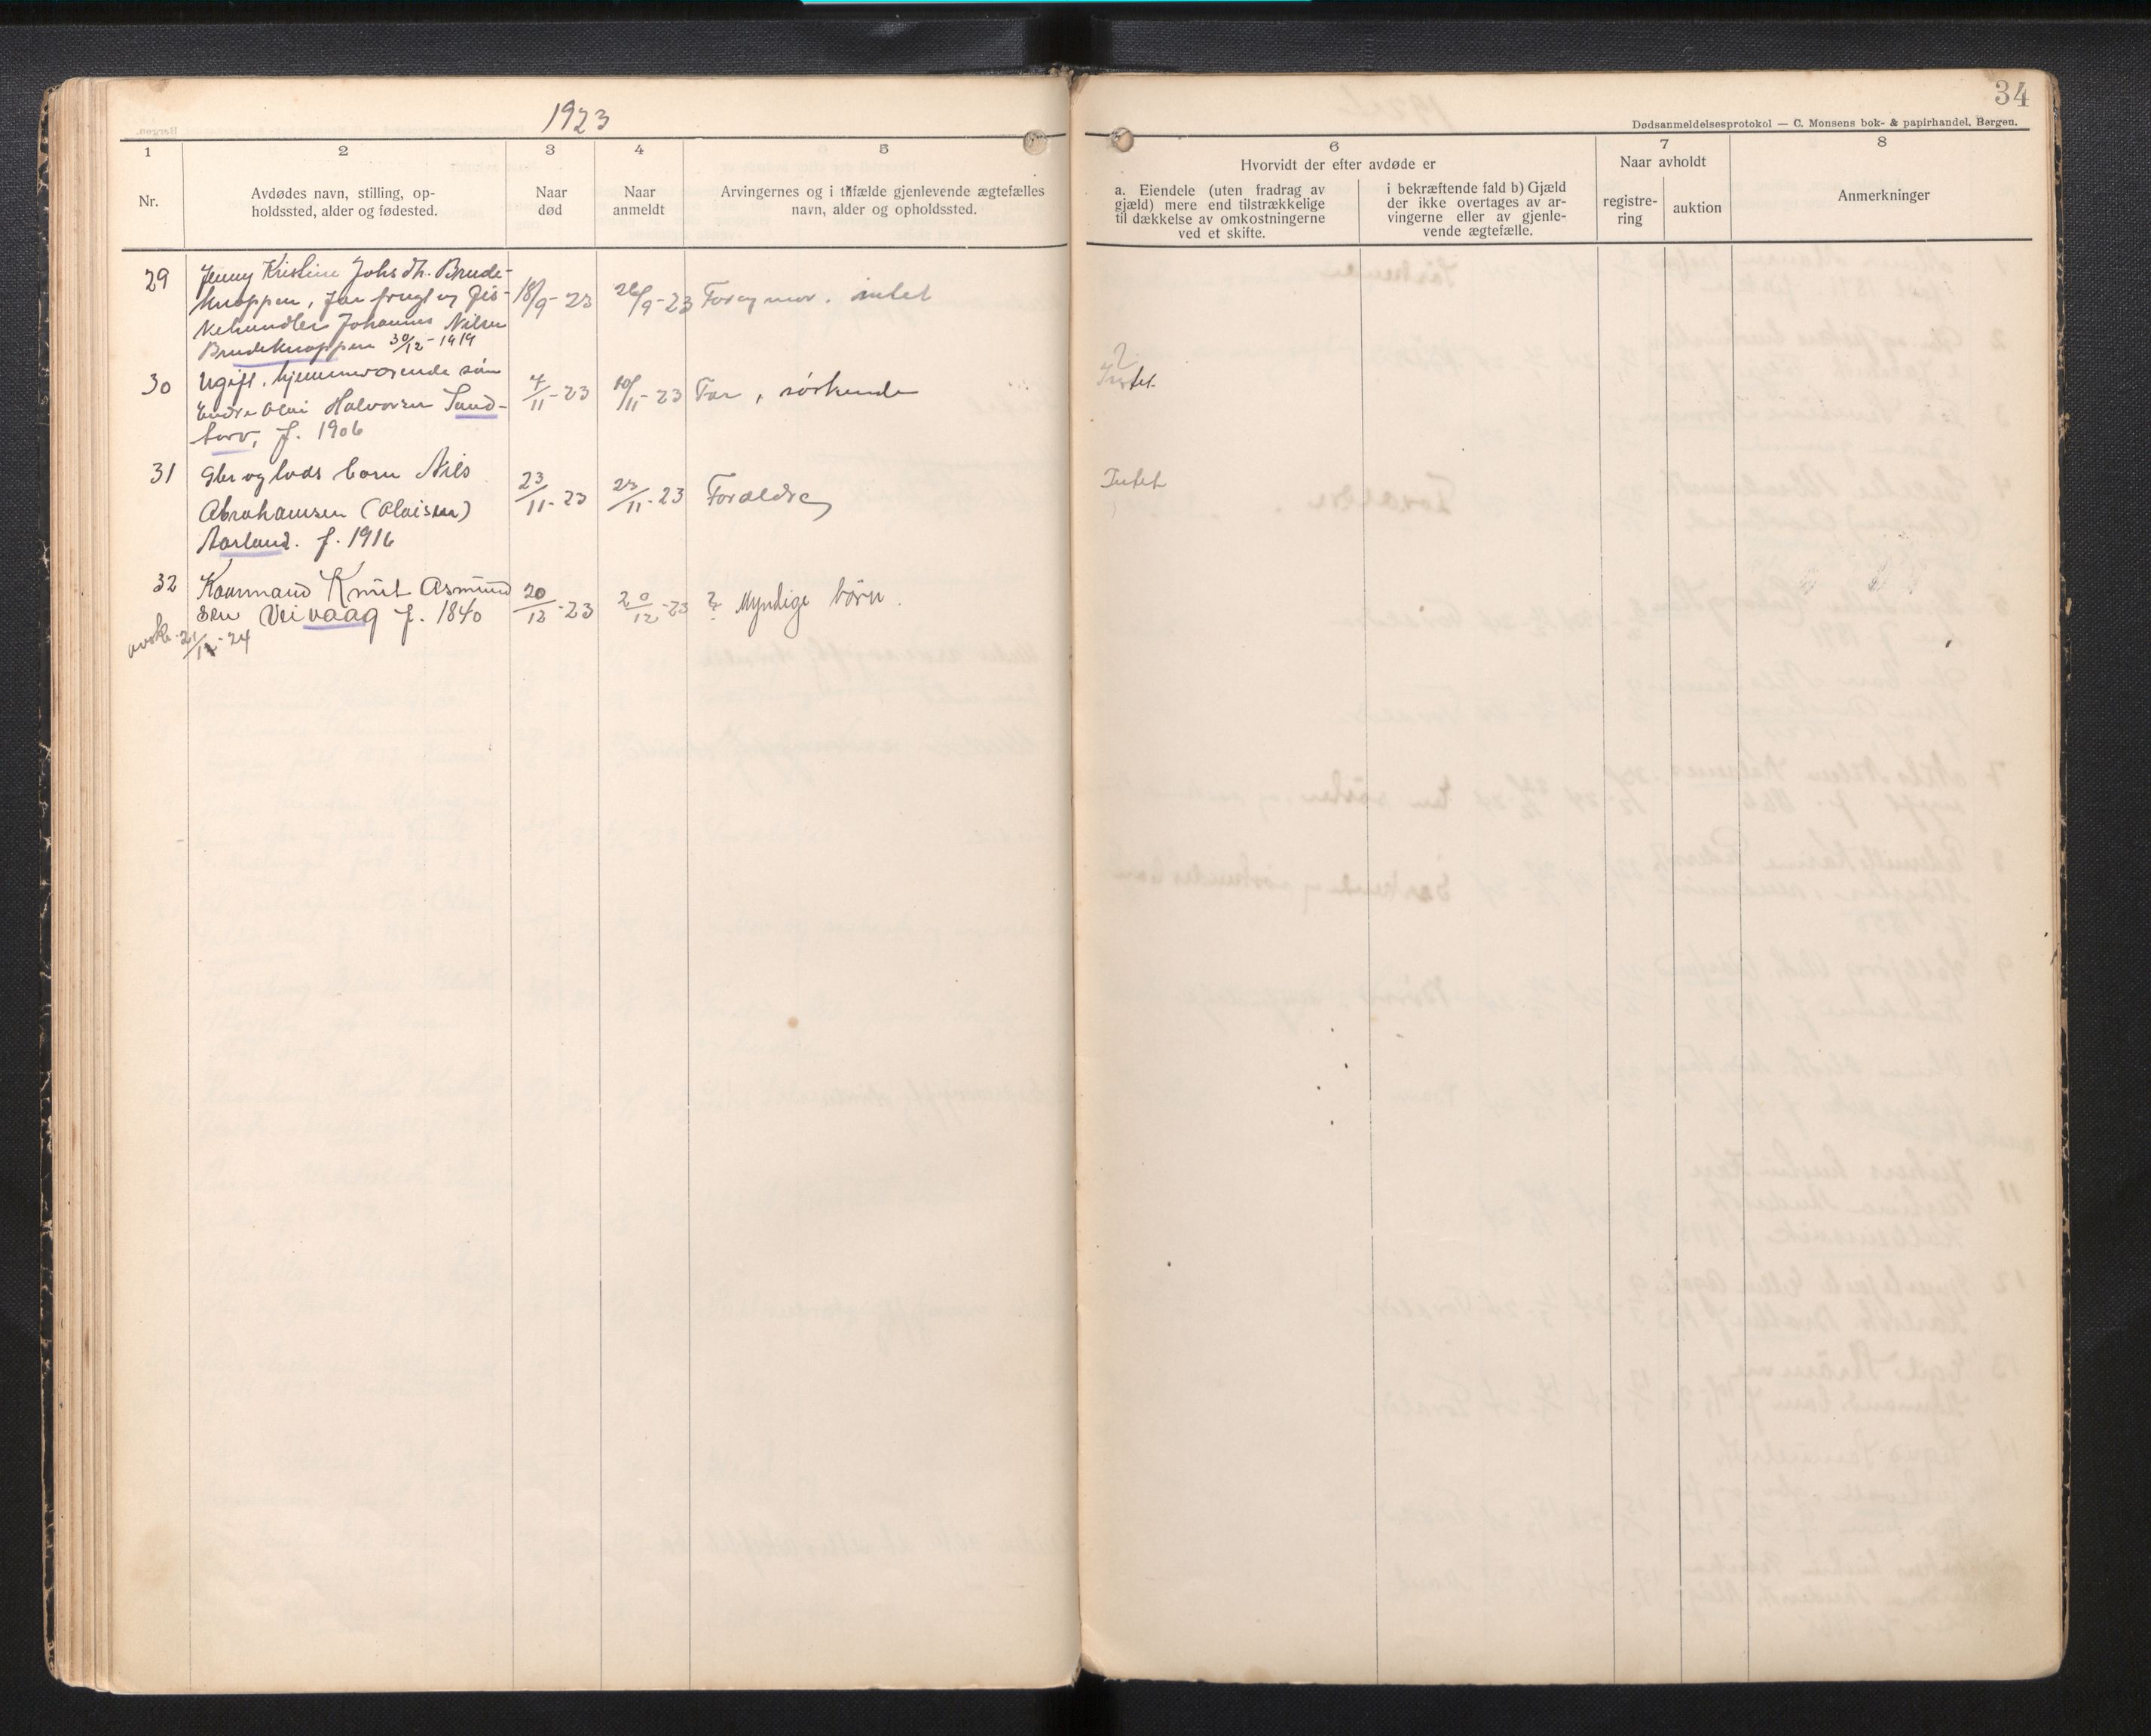 1923
34
Dødsanmeldelsesprotokol — C. Monsens bok- & papirhandel, Bergen.
1
2
3
4
5
6
7
8
Nr.
Avdødes navn, stilling, op-
holdssted, alder og fødested.
Naar
død
Naar
anmeldt
Arvingernes og i tilfælde gjenlevende ægtefælles
navn, alder og opholdssted.
Hvorvidt der efter avdøde er
a. Eiendele (uten fradrag av
gjæld) mere end tilstrækkelige
til dækkelse av omkostningerne
ved et skifte.
i bekræftende fald b) Gjæld
der ikke overtages av ar-
vingerne eller av gjenle-
vende ægtefælle.
Naar avholdt
registre-
ring
auktion
Anmerkninger
29
Jenny Kristine Johs dh. Brude-
knappen, far frugt og fis-
kehandler Johannes Nilsen
Brudeknappen 30/12-1919
18/9-23
26/9-23
Far og mor. intet
30
Ugift. hjemmeværende søn
Endre Olai Halvorsen Sand-
torv, f. 1906
4/11-23
10/11-23
Far, søskende
?
Intet
31
Gbr og lods barn Nils
Abrahamsen (Olaisen)
Aarland. f. 1916
23/11-23
23/11-23
Forældre
Intet
32
Kaarmand Knut Asmund
sen Veivaag f. 1840
20/12-23
20/12-23
? Myndige børn.
21/12-24